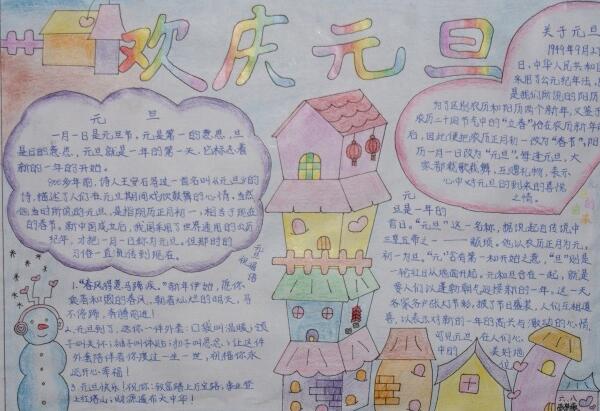 欢庆元旦
元 旦
一月一日是元旦节,元是第一的意思,旦
是日的意思,元旦就是一年的第一天,它标志着
新的一年的开始。
诗,描述了人们在元旦期间戏欢鼓舞的心情,当然
他当时所说的元旦,是指阴历正月初一,相当于现在
的春节。新中国成立后,我国采用了世界通用的公历
纪年,才把一月一日称为元旦。但那时的
习俗一直流传到现在。
元旦祝福语
1."春风得意马蹄疾。"新年伊始,愿你
乘着和煦的春风,朝着灿烂的明天,马
不停蹄,奔腾向前!
2.元旦到了,送你一件外套:口袋叫温暖;领
子叫关怀;袖子叫体贴;扣子叫思念;让这件
外套陪伴着你度过一生一世,祝福你永
远开心幸福!
关于元旦
1949年9月27
日,中华人民共和
采用了公元纪年法,
是我们所说的阳历
为了区别农历和阳历两个新年,又鉴于
农历二十四节气中的"立春"恰在农历新年
后,因此便把农历正月初一改为"春节",阳
历一月一日改为"元旦"。每逢元旦,大
家都载歌载舞,互赠礼物,表示
心中对元旦的到来的喜悦
之情。
元
旦是一年的
首日。"元旦"这一名称,据说起自传说中
三皇五帝之一——颛顼。他以农历正月为元,
初一为旦。"元"含有第一和开始之意,"旦"则是
一轮红日从地面升起。元和旦合在一起,就是
要人们以蓬勃朝气迎接新的一年。这一天
各家各户张灯结彩,披了节日盛装,人们互相道
喜,以表示对新的一年的高兴与激动的心情,
可见元旦在人们心
中的
美好地
位